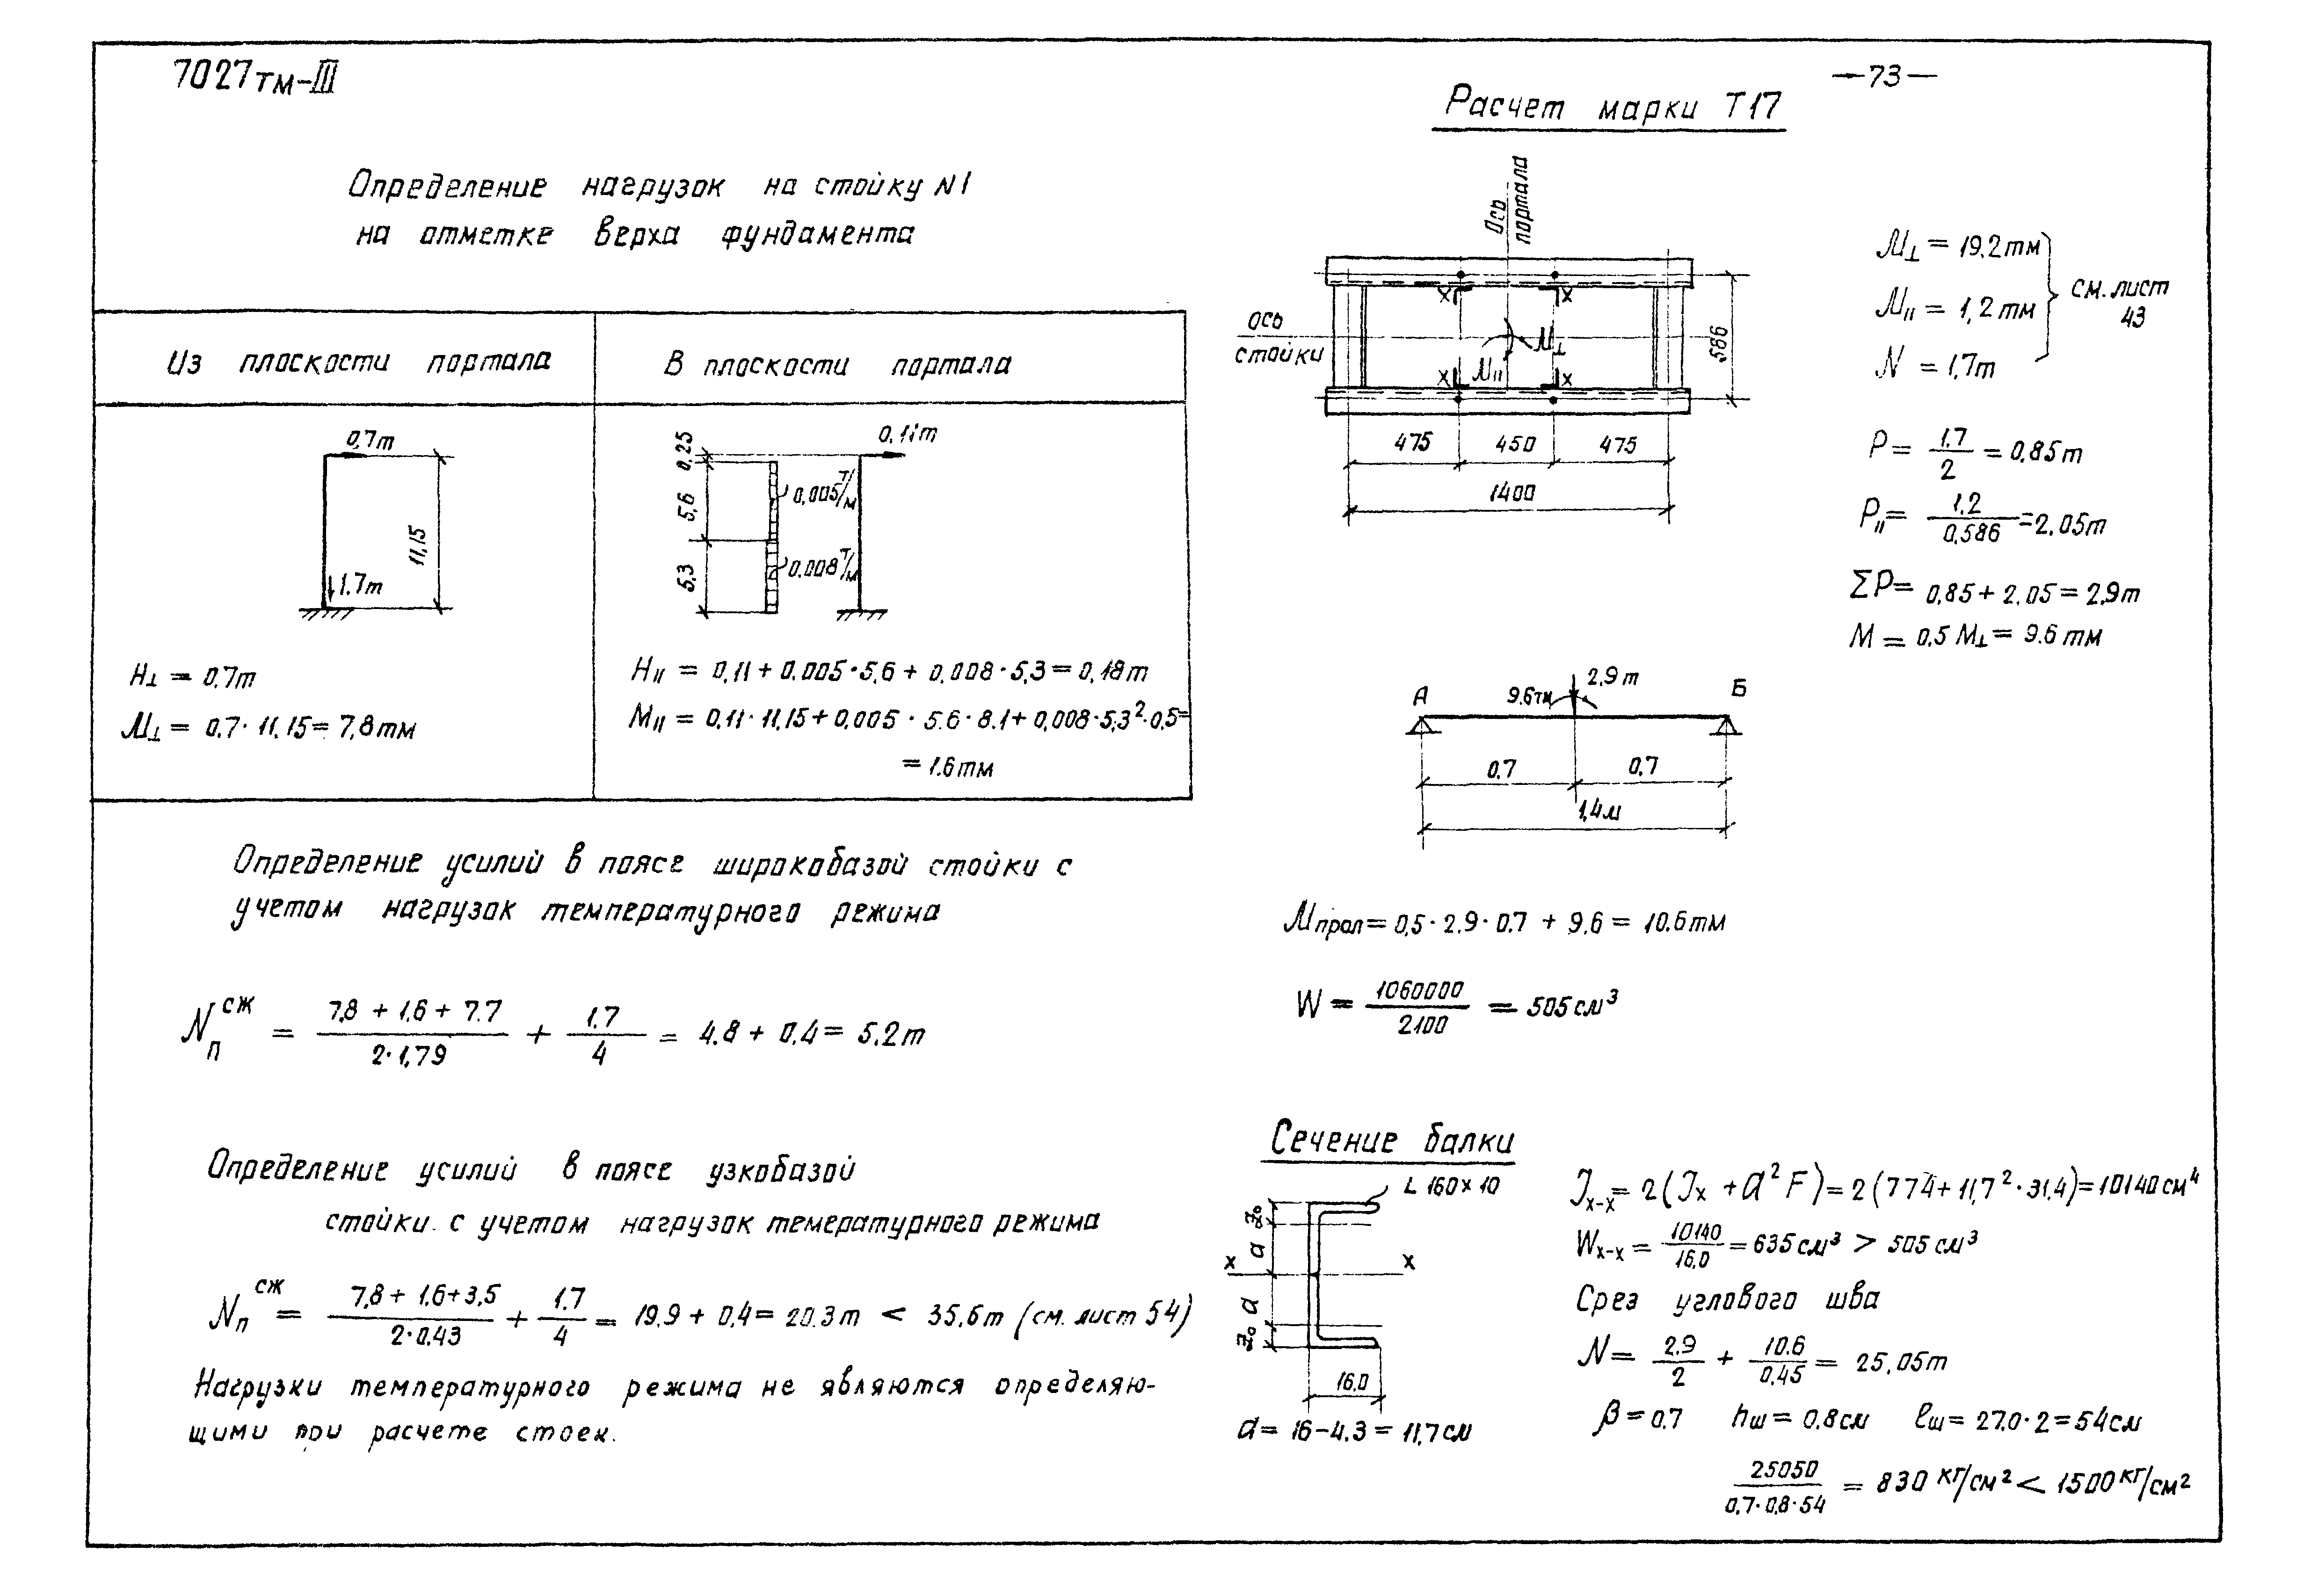 7027тм-III
—73—
Определение нагрузок на стойку N1
на отметке верха фундамента
Из плоскости портала
В плоскости портала
0,7т
11,15
1.7т
0,11т
0,25
5,6
5,3
0,005 т/м
0,008 т/м
H⊥ = 0,7т
M⊥ = 0,7 · 11,15 = 7,8тм
H|| = 0,11 + 0.005·5,6 + 0,008·5,3 = 0,18т
M|| = 0,11· 11,15 + 0,005 · 5.6 · 8.1 + 0,008·5,3²·0,5=
= 1.6тм
Определение усилий в поясе широкобазой стойки с
учетом нагрузок температурного режима
Nп сж = (7,8 + 1.6 + 7.7)/(2·1,79) + 1.7/4 = 4.8 + 0.4 = 5.2т
Определение усилий в поясе узкобазой
стойки. с учетом нагрузок темературного режима
Nп сж = (7,8 + 1.6+3,5)/(2·0.43) + 1.7/4 = 19.9 + 0,4 = 20.3т < 35,6т (см. лист 54)
Нагрузки температурного режима не являются определяю-
щими при расчете стоек.
Расчет марки Т17
Ось
портала
ось
стойки
x x
x x
M⊥
M||
586
475 450 475
1400
M⊥ = 19.2тм
M|| = 1,2 тм
N = 1,7т
см. лист
43
P = 1.7/2 = 0,85т
P|| = 1.2/0,586 = 2.05т
ΣP = 0,85 + 2.05 = 2,9т
M = 0.5 M⊥ = 9.6 тм
А
9.6тм
2,9 т
Б
0.7 0.7
1,4м
Mпрол = 0,5 · 2.9 · 0.7 + 9.6 = 10.6тм
W = 1060000/2100 = 505 см³
Сечение балки
L 160×10
z₀
a
x x
a
z₀
16.0
a = 16-4.3 = 11,7см
Jx-x = 2(Jx + a²F) = 2(774 + 11,7²·31.4) = 10140см⁴
Wx-x = 10140/16,0 = 635 см³ > 505 см³
Срез углового шва
N = 2.9/2 + 10.6/0,45 = 25,05т
β = 0.7 hш = 0.8см ℓш = 27.0·2 = 54см
25050/(0,7·0,8·54) = 830 кг/см² < 1500 кг/см²